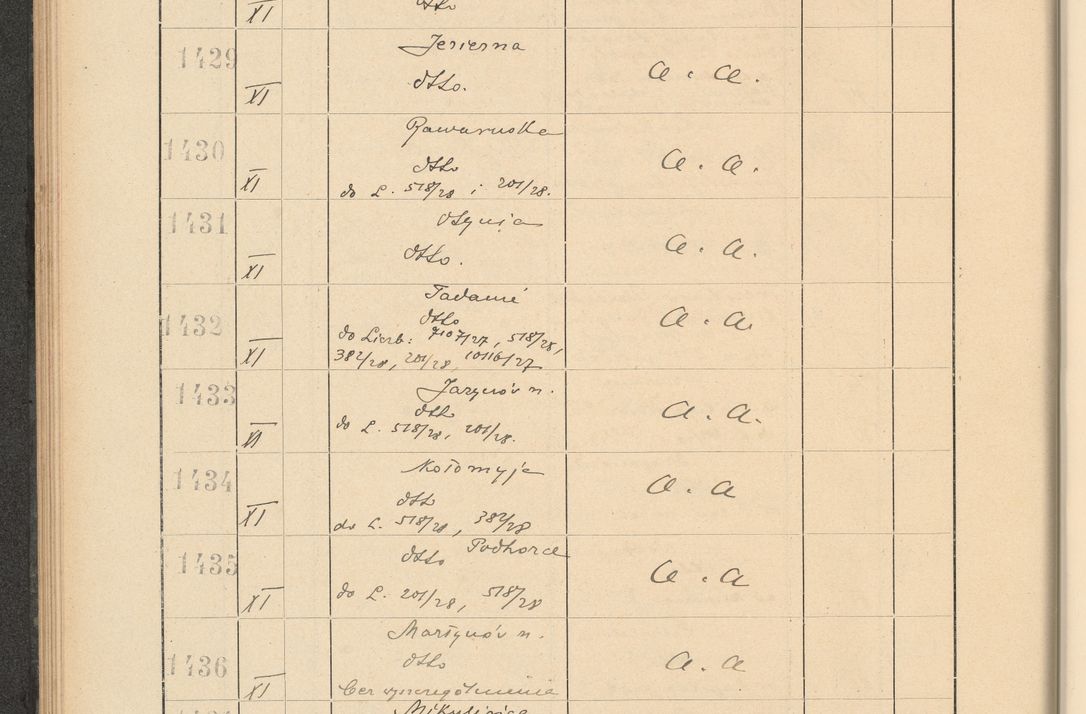 XI dtto
1429 Jezierna
XI dtto. a. a.
1430 Rawaruska
dtto a. a.
XI do L. 518/28 i 201/28.
1431 Ottynja
XI dtto. a. a.
Tadanié
1432 dtto a. a.
do Liczb: 7107/27, 518/28,
XI 382/28, 201/28, 10116/27
1433 Jaryczów n.
dtto a. a.
XI do L. 518/28, 201/28.
Kołomyja
1434 dtto a. a
XI do L. 518/28, 382/28
Podhorce
1435 dtto a. a
XI do L. 201/28, 518/28
Martynów n.
1436 dtto a. a
XI bez wyszczególnienia
Mikulińce